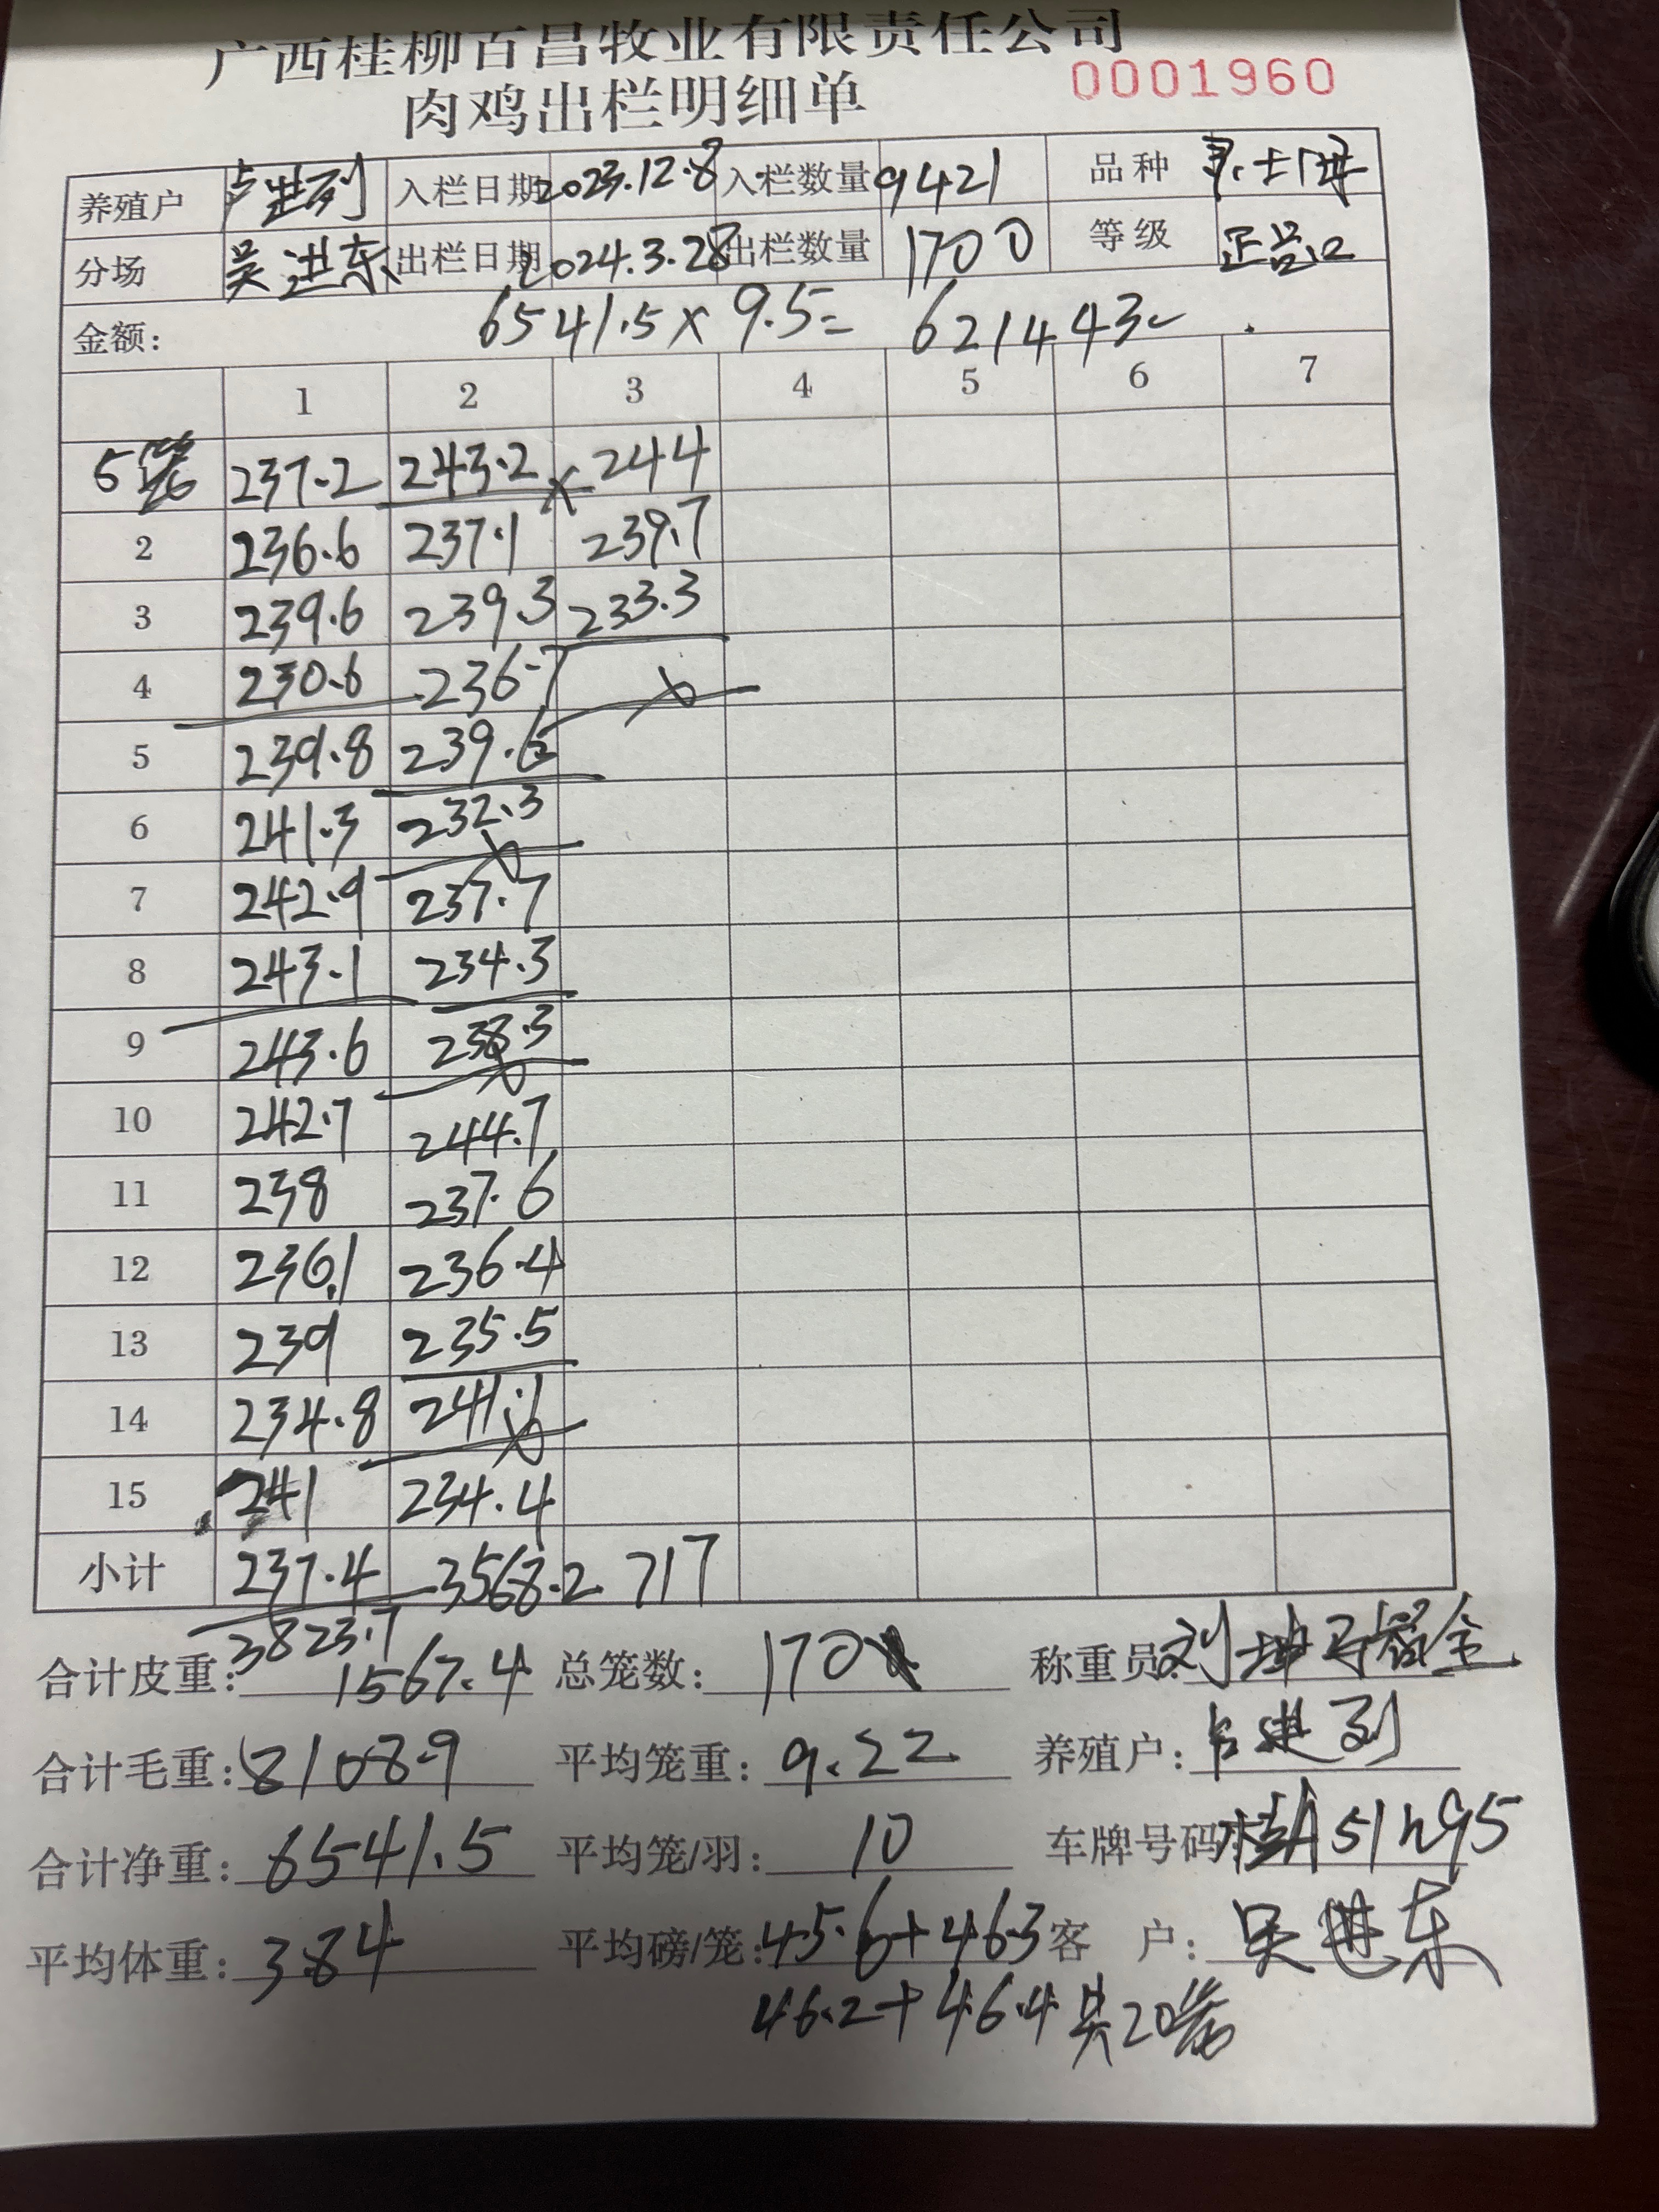 广西桂柳百昌牧业有限责任公司
肉鸡出栏明细单 0001960
养殖户 卢进列 入栏日期 2023.12.8 入栏数量 9421 品种
分场 吴进东 出栏日期 2024.3.28 出栏数量 1700 等级 正品口
金额: 6541.5×9.5= 621443
1 2 3 4 5 6 7
5笼 237.2 243.2 × 244
2 236.6 237.1 239.7
3 239.6 239.3 233.3
4 230.6 236.7
5 239.8 239.6
6 241.3 232.3
7 242.9 237.7
8 243.1 234.3
9 243.6 238.3
10 242.7 244.7
11 238 237.6
12 236.1 236.4
13 239 235.5
14 234.8 241.1
15 241 234.4
小计 237.4 3568.2 717
3823.7
合计皮重: 1567.4 总笼数: 170 称重员:
合计毛重: 8108.9 平均笼重: 9.22 养殖户: 卢进列
合计净重: 6541.5 平均笼/羽: 10 车牌号码:
平均体重: 3.84 平均磅/笼: 45.6+46.3 客 户: 吴进东
46.2+46.4 共20笼